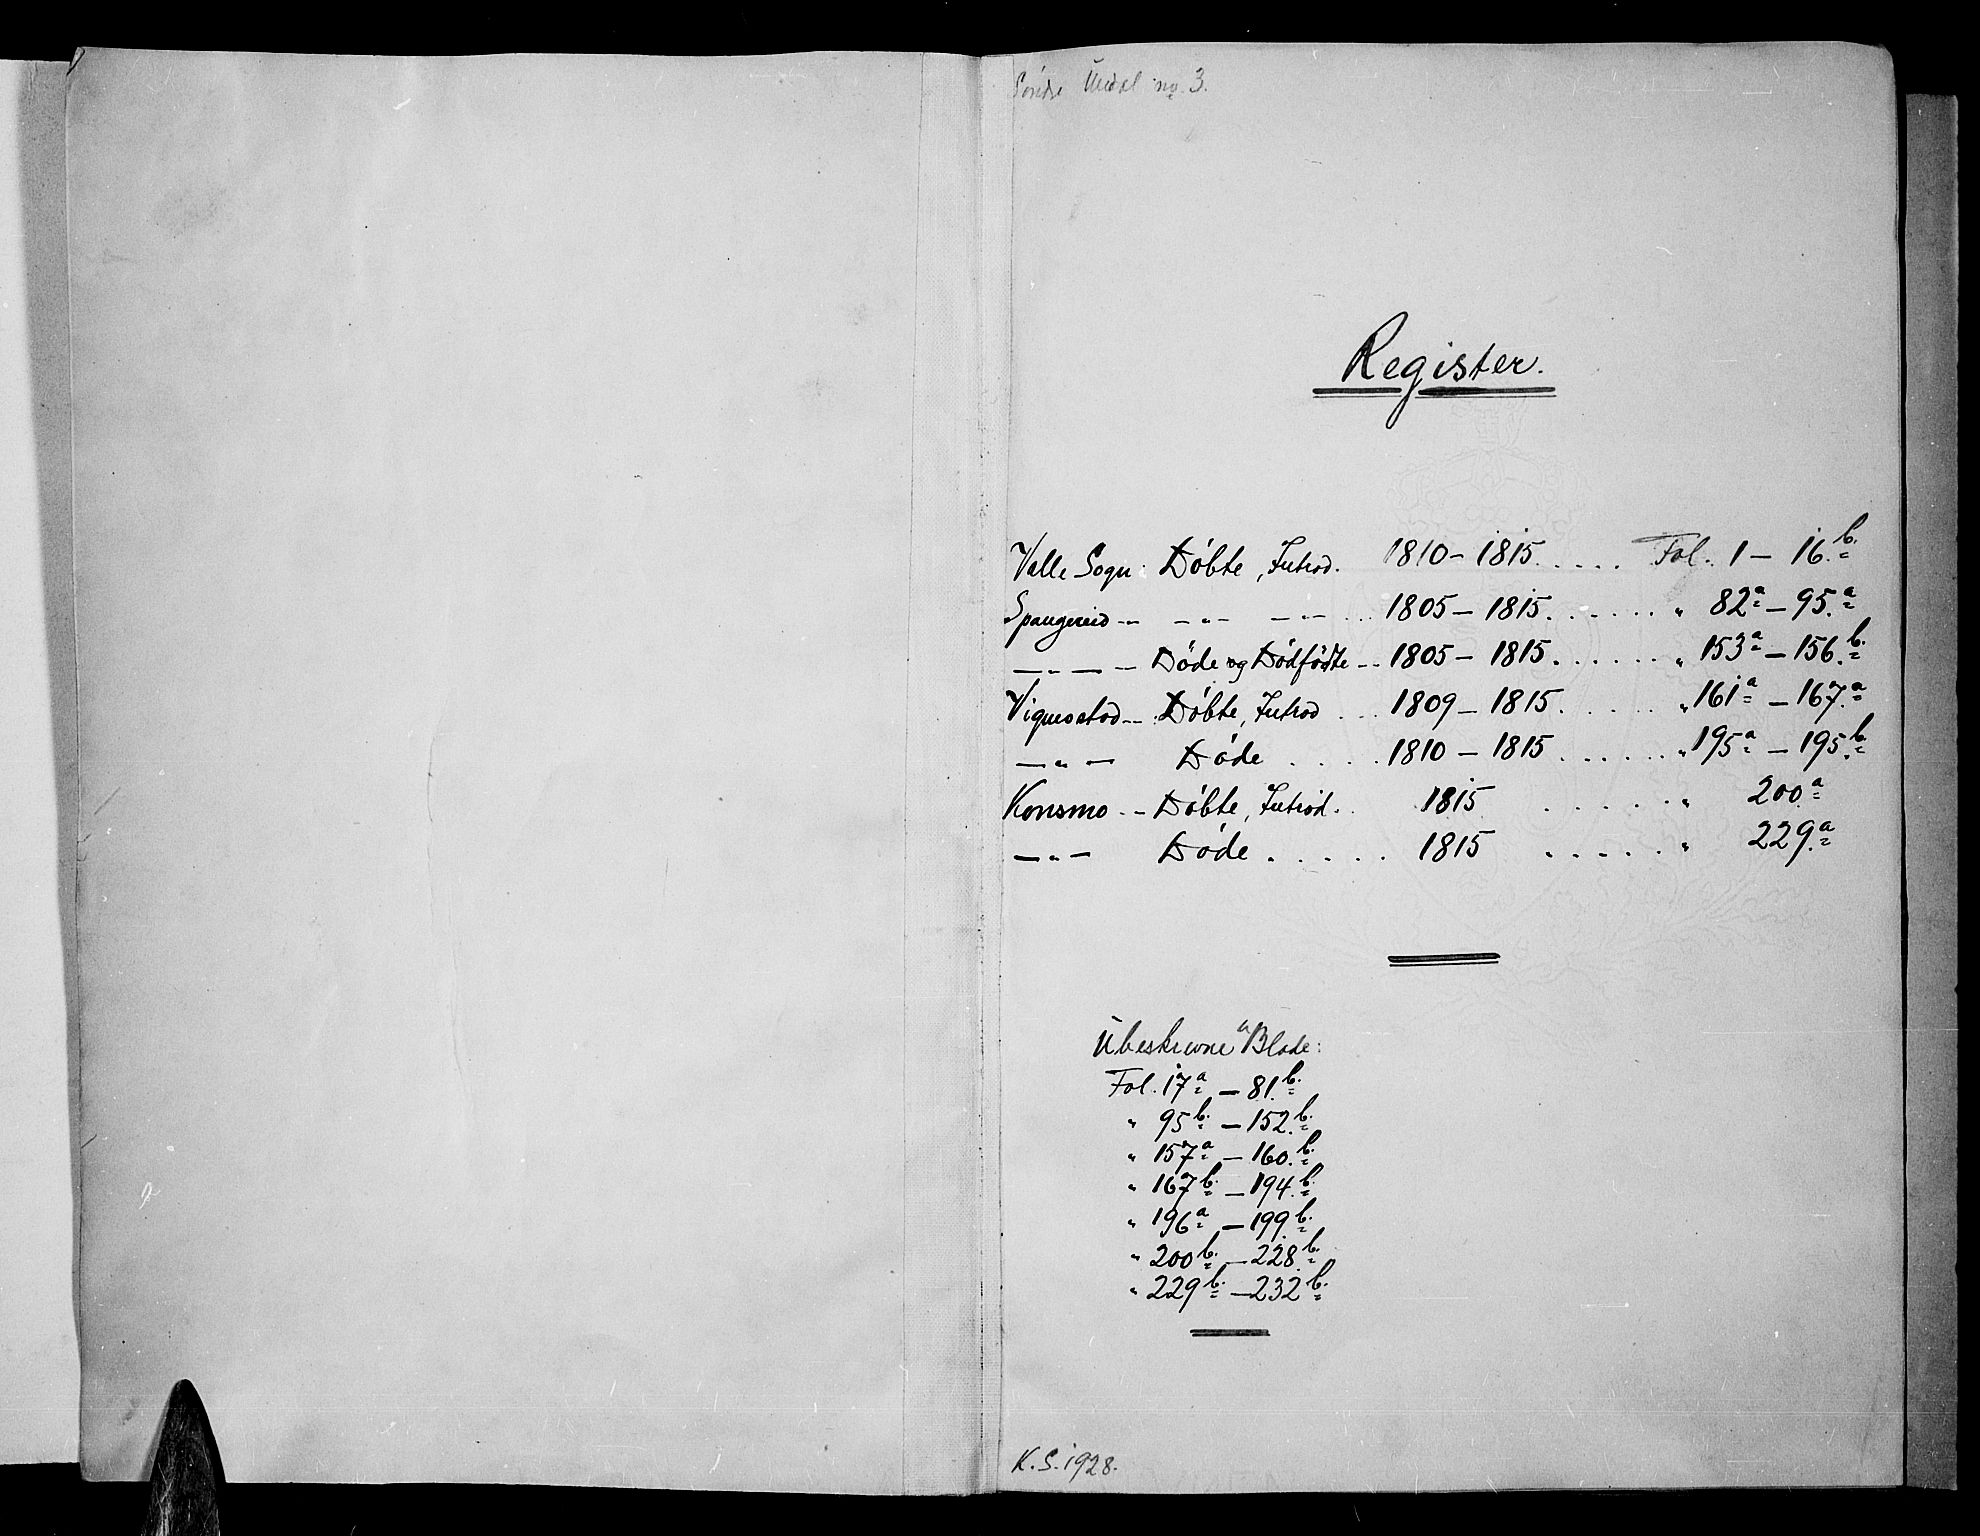 Søndre Undal no. 3.
Register.
Valle Sogn. Døbte, Introd. 1810 – 1815. . . . . Fol. 1 – 16.b.
Spangereid – „ – – „ – – „ – . . 1805 – 1815. . . . . . „ 82a – 95.a
– „ – – Døde og Dødfødte – – 1805 – 1815. . . . . . „ 153a – 156.b.
Vigmostad – – Døbte, Introd . . . 1809 – 1815. . . . . „ 161a – 167.a
– „ – Døde . . . . . 1810 – 1815 . . . . . . „ 195a – 195.b.
Konsmo . – Døbte, Introd. . 1815 . . . . . . „ 200.a
– „ – Døde . . . . . 1815 . . . . . „ 229.a
Übeskrevne Blade:
Fol. 17a – 81.b.
„ 95b. – 152.b.
„ 157a – 160.b.
„ 167b. – 194.b.
„ 196a – 199.b.
„ 200b. – 228.b.
„ 229b. – 232b.
K. S. 1928.